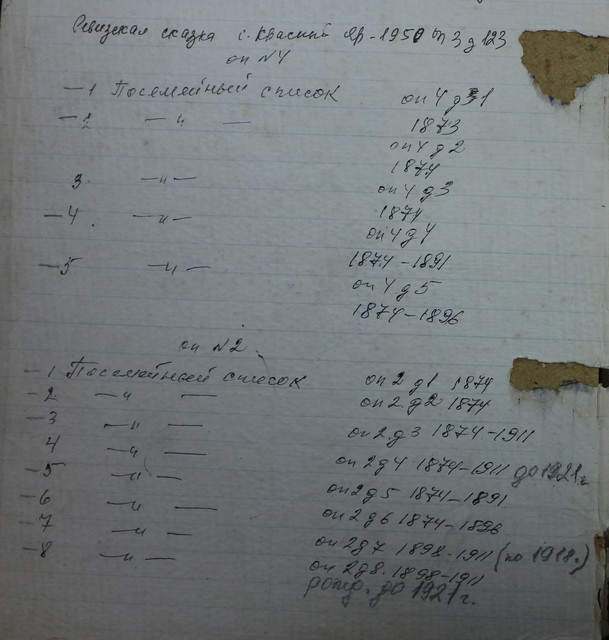 Ревизская сказка с. Красный Яр - 1950 оп 3 д 123
оп №4
- 1 Посемейный список оп 4 д 1
1873
- 2 - " - оп 4 д 2
1874
3 - " - оп 4 д 3
1874
- 4 - " - оп 4 д 4
1874-1891
- 5 - " - оп 4 д 5
1874-1896
оп №2
- 1 Посемейный список оп 2 д 1 1874
- 2 - " - оп 2 д 2 1874
- 3 - " - оп 2 д 3 1874-1911
4 - " - оп 2 д 4 1874-1911 до 1921 г
- 5 - " - оп 2 д 5 1874-1891
- 6 - " - оп 2 д 6 1874-1896
- 7 - " - оп 2 д 7 1898-1911 (по 1918.)
- 8 - " - оп 2 д 8. 1898-1911
рожд. до 1921 г.